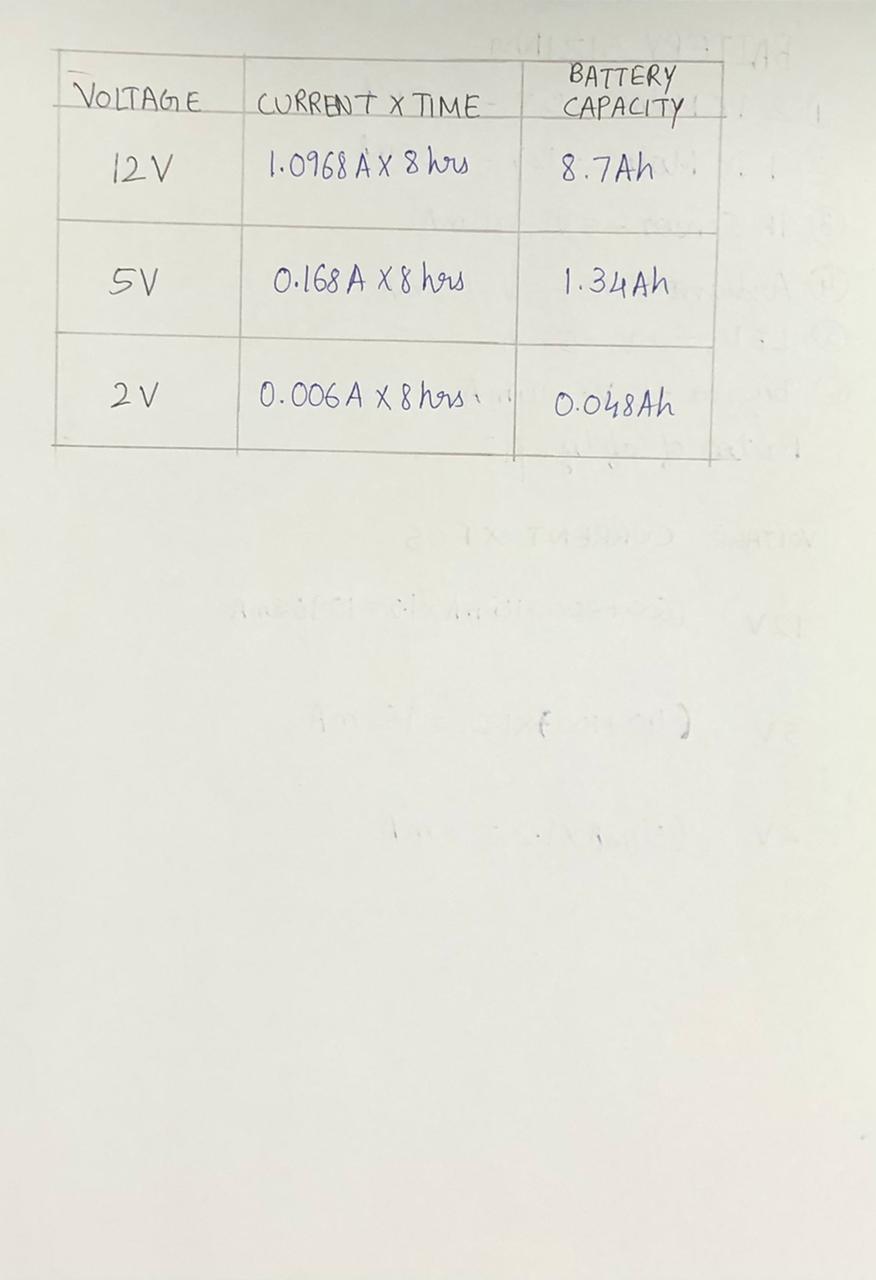 VOLTAGE CURRENT X TIME BATTERY CAPACITY
12V 1.0968A X 8 hrs 8.7Ah
5V 0.168A X 8 hrs 1.34Ah
2V 0.006A X 8 hrs. 0.048Ah